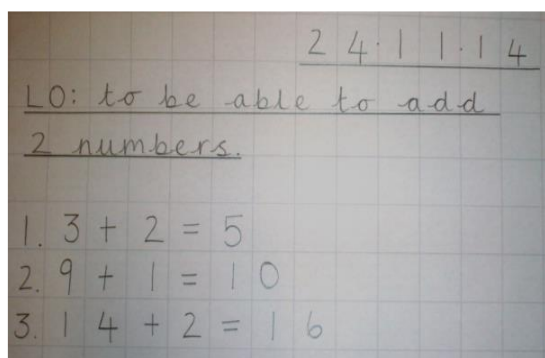 24.11.14
LO: to be able to add
2 numbers.
1. 3 + 2 = 5
2. 9 + 1 = 10
3. 14 + 2 = 16